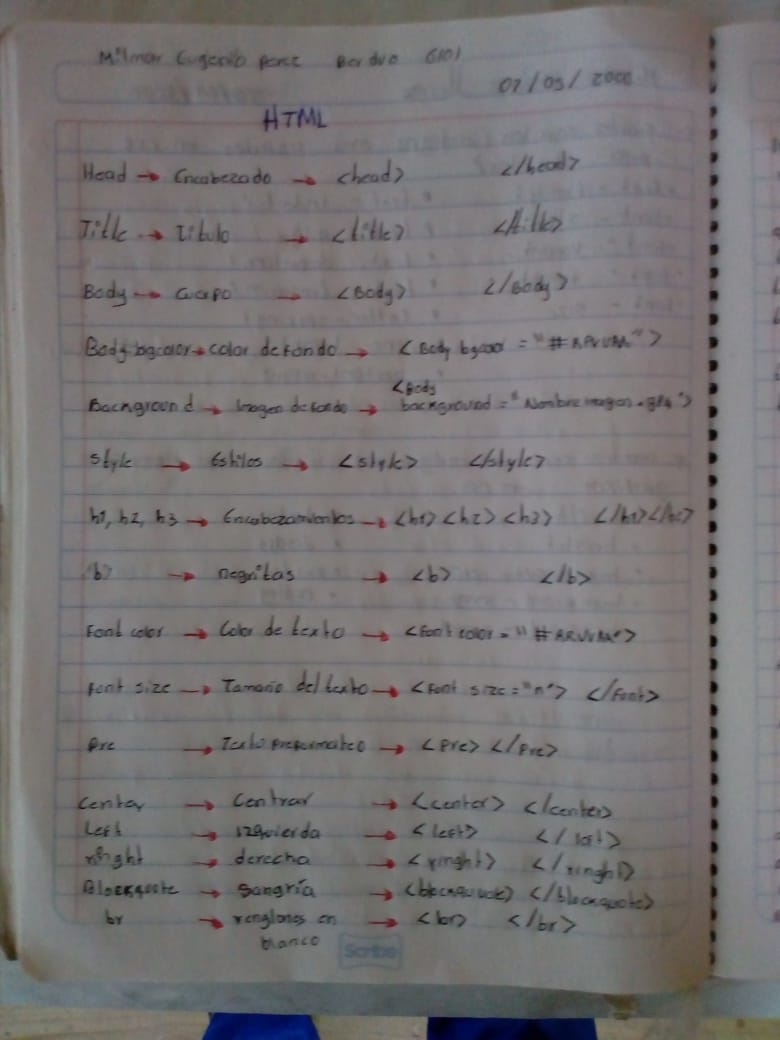 Milmar Eugenio Perez Berduo 6101
07/05/2000
HTML
Head → Encabezado → <head> </head>
Title → Titulo → <title> </title>
Body → Cuerpo → <Body> </Body>
Body bgcolor → color de fondo → <Body bgcolor = "# ">
<Body
Background → Imagen de fondo → background = "Nombre imagen. ">
style → Estilos → <style> </style>
h1, h2, h3 → Encabezamientos → <h1> <h2> <h3> </h1> </h2>
<b> → negritas → <b> </b>
Font color → Color de texto → <Font color = "# ">
Font size → Tamaño del texto → <Font size = "n"> </Font>
Pre → Texto preformateo → <Pre> </Pre>
Center → Centrar → <center> </center>
Left → izquierda → <left> </left>
ringht → derecha → <ringht> </ringht>
Blockquote → Sangría → <blockquote> </blockquote>
br → renglones en → <br> </br>
blanco
Scribe